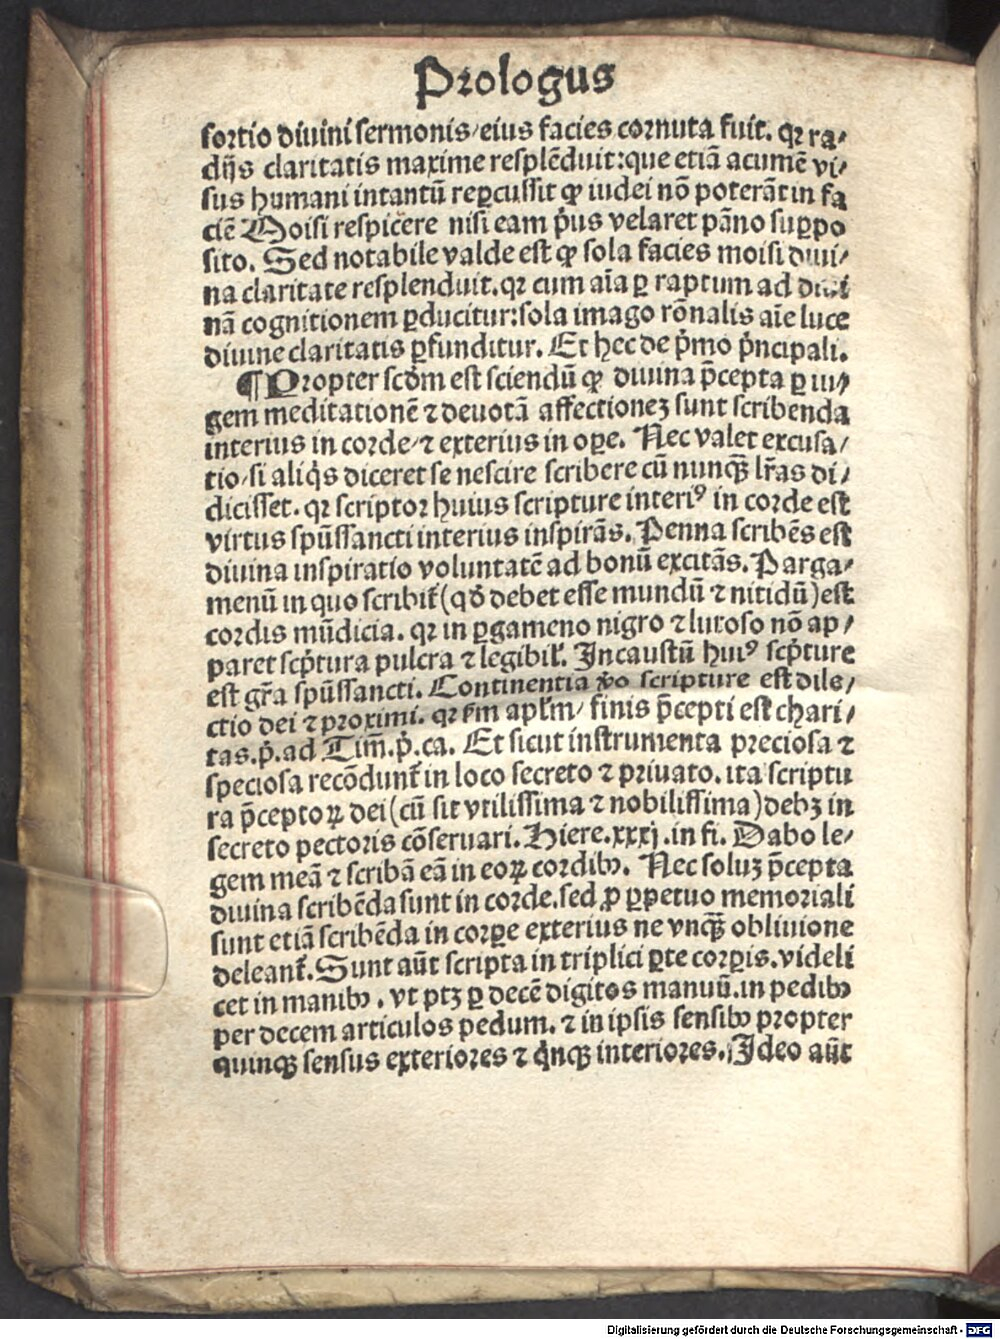 Prologus
sortio diuini sermonis/eius facies cornuta fuit. qꝛ ra⸗
dijs claritatis maxime resplēduit:que etiā acumē vi⸗
sus humani intantū reꝑcussit ꝙ iudei nō poterāt in fa
ciē Moisi respicere nisi eam pͥus velaret pāno suppo
sito. Sed notabile valde est ꝙ sola facies moisi diui⸗
na claritate resplenduit. qꝛ cum aīa ꝑ raptum ad diui
nā cognitionem ꝑducitur:sola imago rōnalis aīe luce
diuine claritatis ꝑfunditur. Et hec de pͥmo pͥncipali.
¶ Propter scdm est sciendū ꝙ diuina p̄cepta ꝑ iu⸗
gem meditationē ⁊ deuotā affectioneꝫ sunt scribenda
interius in corde/⁊ exterius in oꝑe. Nec valet excusa⸗
tio/si aliqͥs diceret se nescire scribere cū nunqꝫ̄ lr̄as di⸗
dicisset. qꝛ scriptor huius scripture interiꝰ in corde est
virtus spūssancti interius inspirās. Penna scribēs est
diuina inspiratio voluntatē ad bonū excitās. Parga⸗
menū in quo scribit᷑ (qd̄ debet esse mundū ⁊ nitidū) est
cordis mūdicia. qꝛ in ꝑgameno nigro ⁊ lutoso nō ap⸗
paret scpͥtura pulcra ⁊ legibil᷑. Incaustū huiꝰ scpͥture
est gr̄a spūssancti. Continentia v̊o scripture est dile⸗
ctio dei ⁊ proximi. qꝛ ẜm apl̄m/ finis p̄cepti est chari⸗
tas. pͥ. ad Tim̄. pͥ. ca. Et sicut instrumenta preciosa ⁊
speciosa recōdunt᷑ in loco secreto ⁊ priuato. ita scriptu
ra p̄ceptoꝝ dei (cū sit vtilissima ⁊ nobilissima) debꝫ in
secreto pectoris cōseruari. Hiere. xxxj. in fi. Dabo le⸗
gem meā ⁊ scribā eā in eoꝝ cordibꝰ. Nec soluꝫ p̄cepta
diuina scribēda sunt in corde. sed ꝓ ꝑpetuo memoriali
sunt etiā scribēda in corꝑe exterius ne vnqꝫ̄ obliuione
deleant᷑. Sunt aūt scripta in triplici ꝑte corꝑis. videli
cet in manibꝰ. vt ptꝫ ꝑ decē digitos manuū. in pedibꝰ
per decem articulos pedum. ⁊ in ipsis sensibꝰ propter
quinqꝫ sensus exteriores ⁊ qͥnqꝫ interiores. Ideo aūt
Digitalisierung gefördert durch die Deutsche Forschungsgemeinschaft - DFG